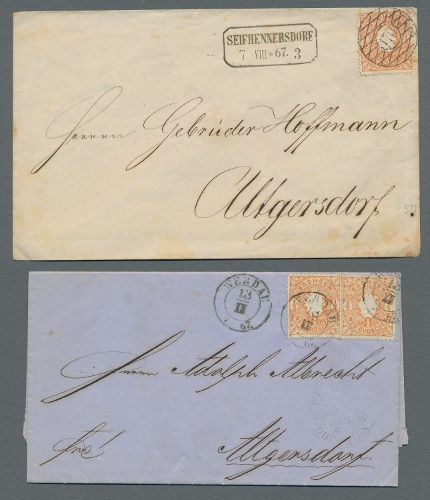 SEIFHENNERSDORF
7 VIII 67. 3
Herren Gebrüder Hoffmann
Altgersdorf.
WERDAU
13
II
67
Herrn Adolph Albrecht
frco!
Altgersdorf